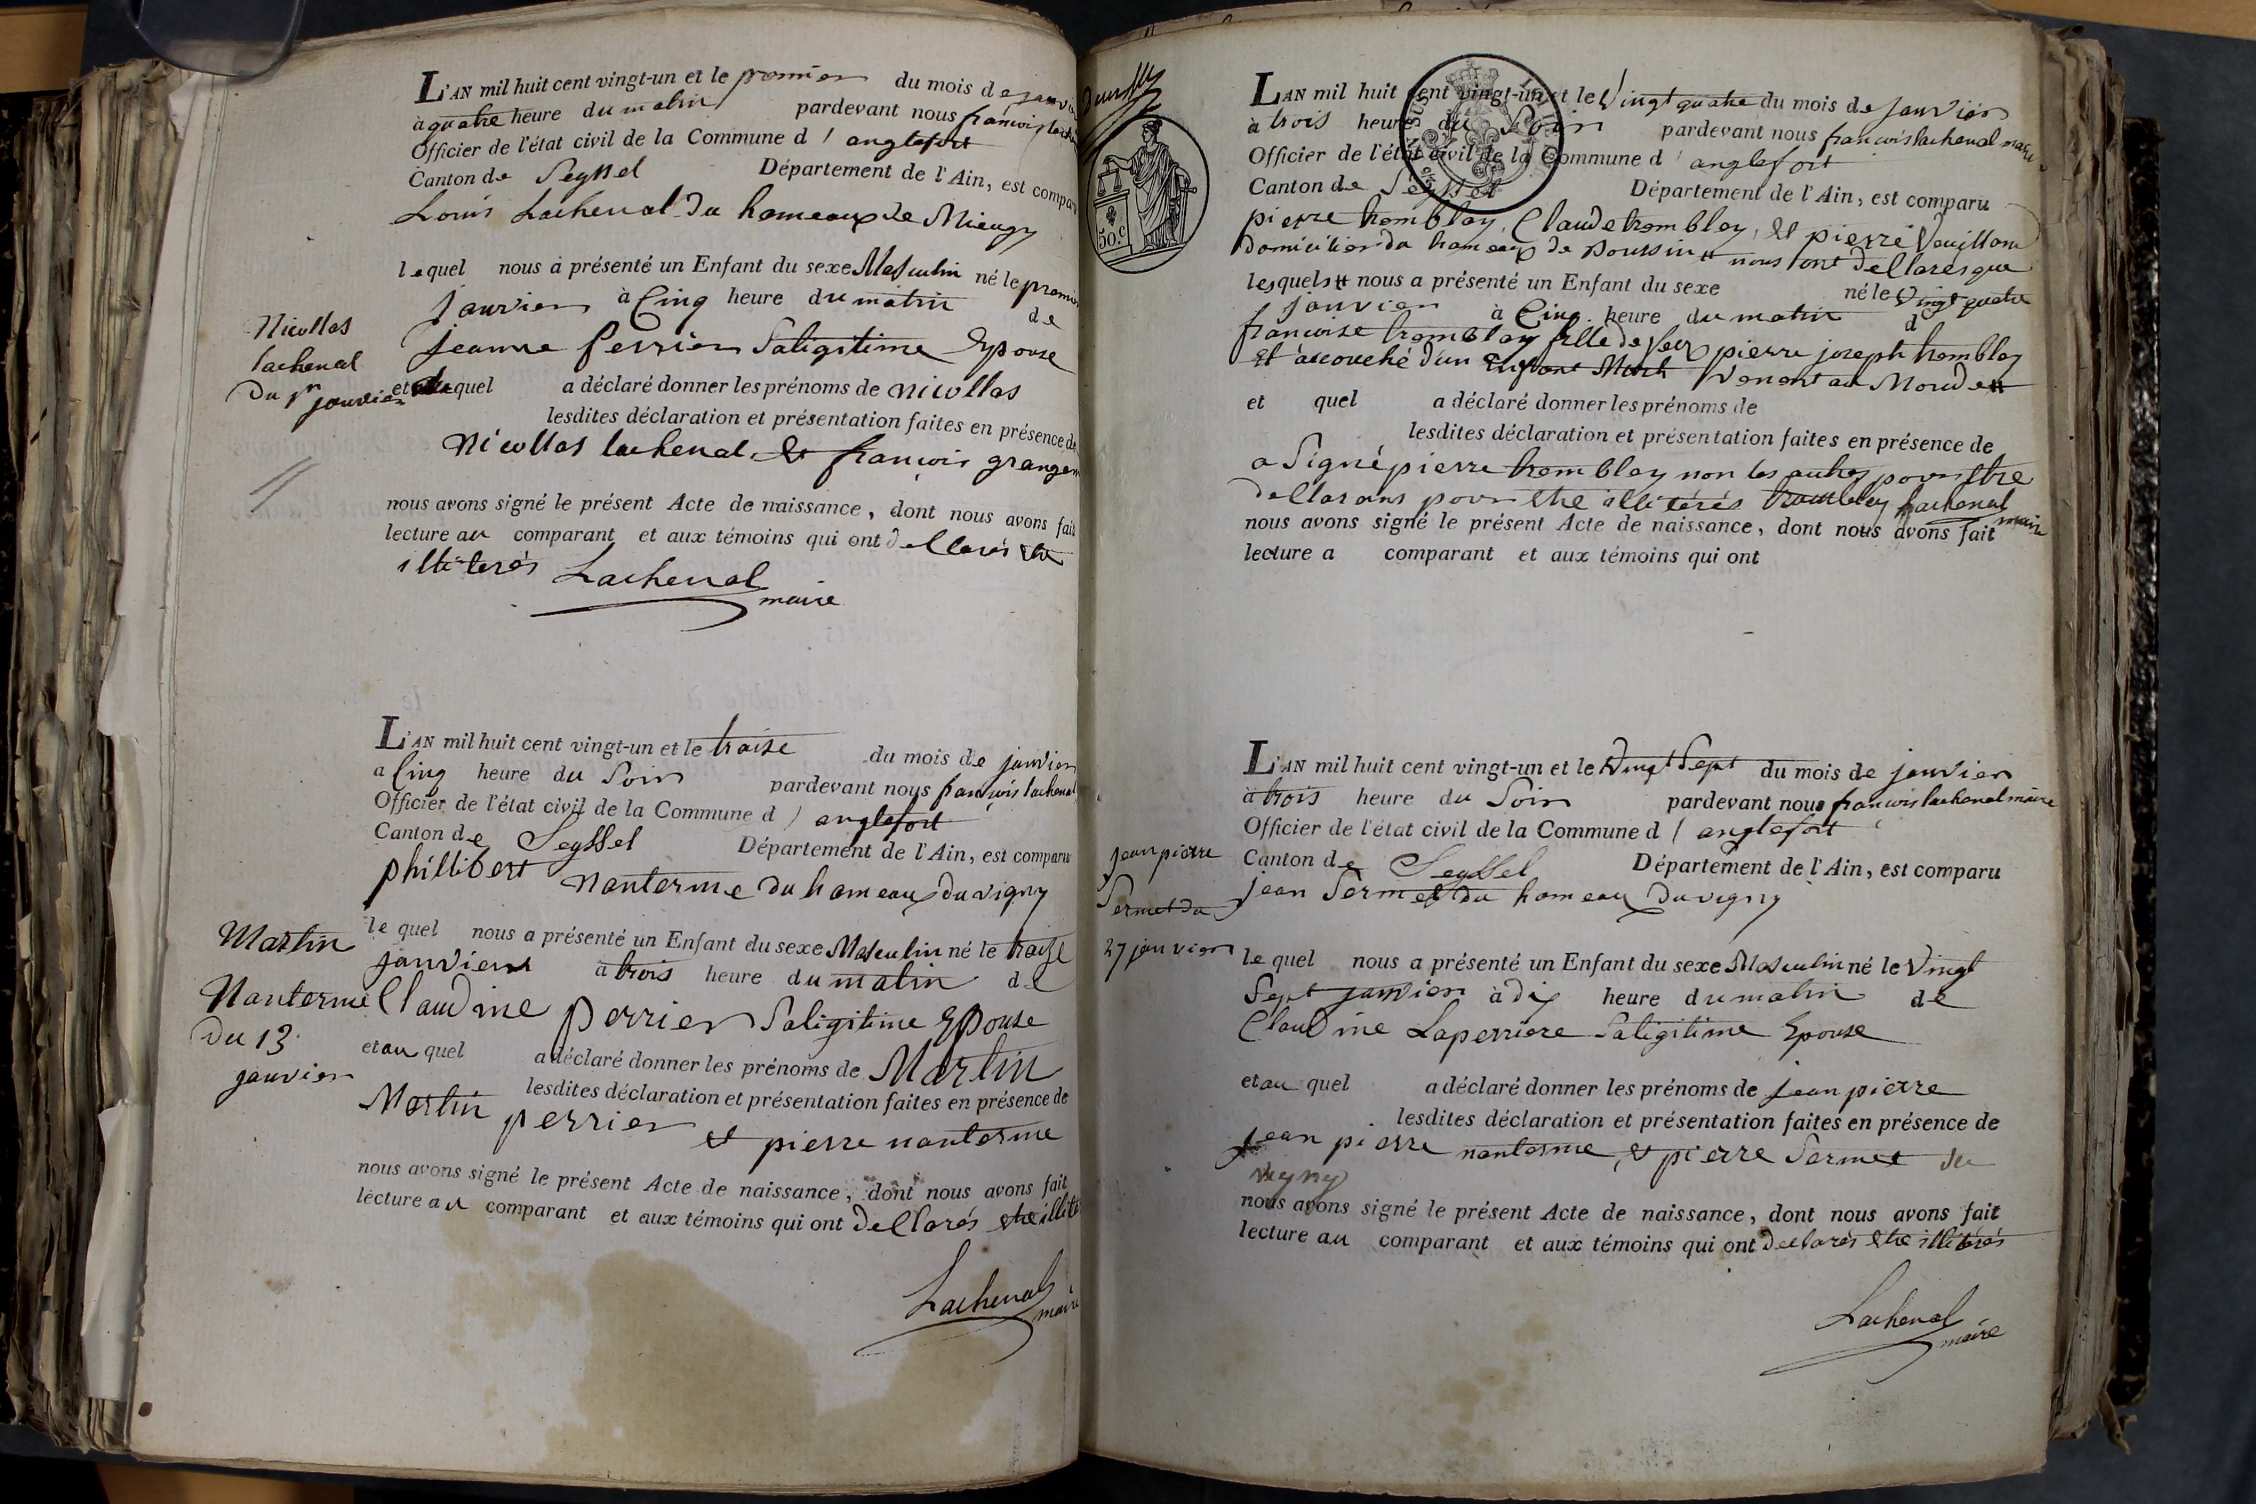 L'AN mil huit cent vingt-un et le premier du mois de janvier
à quatre heure du matin pardevant nous françois
Officier de l'état civil de la Commune d'anglefort
Canton de Seyssel Département de l'Ain, est comparu
Louis Lachenal du hameaux de Mieugy
lequel nous a présenté un Enfant du sexe Masculin né le premier
janvier à Cinq heure du matin de
jeanne perrier Saligitime Epouse
et quel a déclaré donner les prénoms de nicollas
lesdites déclaration et présentation faites en présence de
Nicollas lachenal, et françois
nous avons signé le présent Acte de naissance, dont nous avons fait
lecture au comparant et aux témoins qui ont dellarés etre
illiterés Lachenal
maire
Nicollas
lachenal
Du 1r
janvier
L'AN mil huit cent vingt-un et le traise du mois de janvier
a Cinq heure du Soir pardevant nous françois lachenal
Officier de l'état civil de la Commune d'anglefort
Canton de Seyssel Département de l'Ain, est comparu
phillibert nanterme du hameaux du vigny
le quel nous a présenté un Enfant du sexe Masculin né le traise
janvier à trois heure du matin de
Claudine perrier Saligitime Epouse
et au quel a déclaré donner les prénoms de Martin
lesdites déclaration et présentation faites en présence de
Martin perrier et pierre nanterme
nous avons signé le présent Acte de naissance, dont nous avons fait
lecture au comparant et aux témoins qui ont dellarés etre
Lachenal
maire
Martin
Nanterme
Du 13
janvier
50.c
L'AN mil huit cent vingt-un et le Vingt quatre du mois de janvier
à trois heure du Soir pardevant nous francois lachenal maire
Officier de l'état civil de la Commune d'anglefort
Canton de Seyssel Département de l'Ain, est comparu
pierre tromblay, Claude tromblay, et pierre
domicilier du hameaux de poussin nous ont dellares que
lesquels nous a présenté un Enfant du sexe né le Vingt quatre
janvier à Cinq heure du matin d
francoise tromblay fille de feux pierre joseph tromblay
Et accouché d'un Enfant Mort Venent au Monde
et quel a déclaré donner les prénoms de
lesdites déclaration et présentation faites en présence de
a Signé pierre tromblay non les autres pour etre
dellarans pour etre illiterés tromblay Lachenal
maire
nous avons signé le présent Acte de naissance, dont nous avons fait
lecture a comparant et aux témoins qui ont
L'AN mil huit cent vingt-un et le Vingt Sept du mois de janvier
à trois heure du Soir pardevant nous françois lachenal maire
Officier de l'état civil de la Commune d'anglefort
Canton de Seyssel Département de l'Ain, est comparu
jean Sermet du hameaux du vigny
le quel nous a présenté un Enfant du sexe Masculin né le Vingt
Sept janvier à dix heure du matin de
Claudine Laperriere Saligitime Epouse
et au quel a déclaré donner les prénoms de jean pierre
lesdites déclaration et présentation faites en présence de
jean pierre nanterme, et pierre Sermet du
vigny
nous avons signé le présent Acte de naissance, dont nous avons fait
lecture au comparant et aux témoins qui ont declarés etre illiterés
Lachenal
maire
jean pierre
Sermet du
27 janvier